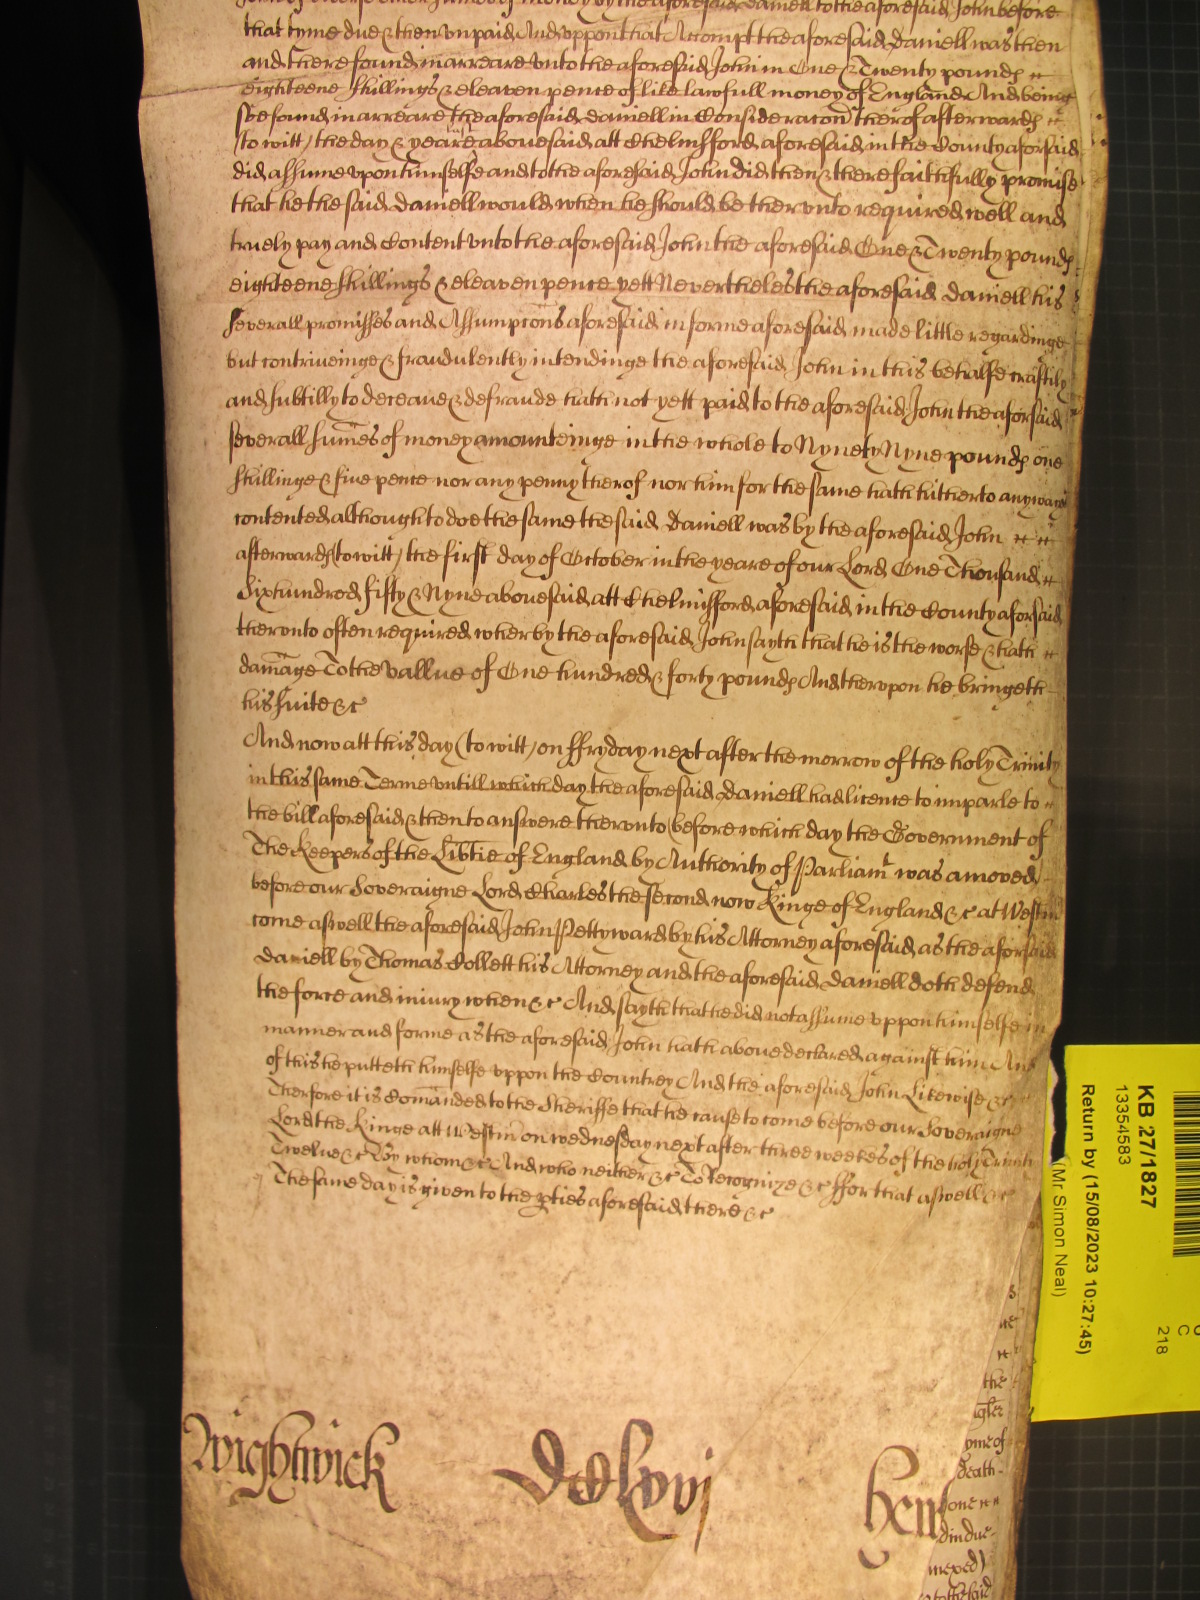 severall sumes of money by the aforesaid Daniell to the aforesaid John before
that tyme due & then vnpaid And vppon that Accompt the aforesaid Daniell was then
and there found in arreare vnto the aforesaid John in One & Twenty pounds
eighteene shillings & eleaven pence of like lawfull money of England And being
soe found in arreare the aforesaid Daniell in Consideracon therof afterwards
(to witt) the day & yeare last abouesaid att Chelmisford aforesaid in the County aforsaid
did assume vpon himselfe and to the aforesaid John did then & there faithfully promise
that he the said Daniell would when he should be thervnto required well and
truely pay and Content vnto the aforesaid John the aforesaid One & Twenty pounds
eighteene shillings & eleaven pence yett Neverthelesse the aforesaid Daniell his
severall promisses and Assumpcons aforesaid in forme aforesaid made little regardinge
but contriueinge & fraudulently intendinge the aforesaid John in this behalfe craftily
and subtilly to deceaue & defraude hath not yett paid to the aforesaid John the aforsaid
severall sumes of money amounteinge in the whole to Nynety Nyne pounds one
shillinge & fiue pence nor any penny therof nor him for the same hath hitherto any wayes
contented although to doe the same the said Daniell was by the aforesaid John
afterwards (to witt) the first day of October in the yeare of our Lord One Thousand
Sixhundred fifty & Nyne abouesaid att Chelmisford aforesaid in the County aforsaid
thervnto often required wherby the aforesaid John sayth that he is the worse & hath
damage To the vallue of One hundred & forty pounds And thervpon he bringeth
his suite &c
And now att this day (to witt) on ffryday next after the morrow of the holy Trinity
in this same Terme vntill which day the aforesaid Daniell had licence to imparle to
the bill aforesaid & then to answere thervnto before which day the Government of
The Keepers of the Libtie of England by Authority of Parliamt was amoved
before our Soveraigne Lord Charles the second now Kinge of England &c at Westm
come aswell the aforesaid John Pettyward by his Attorney aforesaid as the aforsaid
Daniell by Thomas Collett his Attorney and the aforesaid Daniell doth defend
the force and iniury when &c And sayth that he did not assume vppon himselfe in
manner and forme as the aforesaid John hath aboue declared against him And
of this he putteth himselfe vppon the Countrey And the aforesaid John Likewise &c
Therfore it is Comanded to the Sheriffe that he cause to come before our Soveraigne
Lord the Kinge att Westm on wednesday next after three weekes of the holy Trinity
Twelve &c By whom &c And who neither &c To Recognize &c ffor that aswell &c
The same day is given to the pties aforesaid there &c
Wightwick
KB 27/1827
13354583
Return by (15/08/2023 10:27:45)
(Mr Simon Neal)
C
218
the
yme of
death
one
din due
mexed)